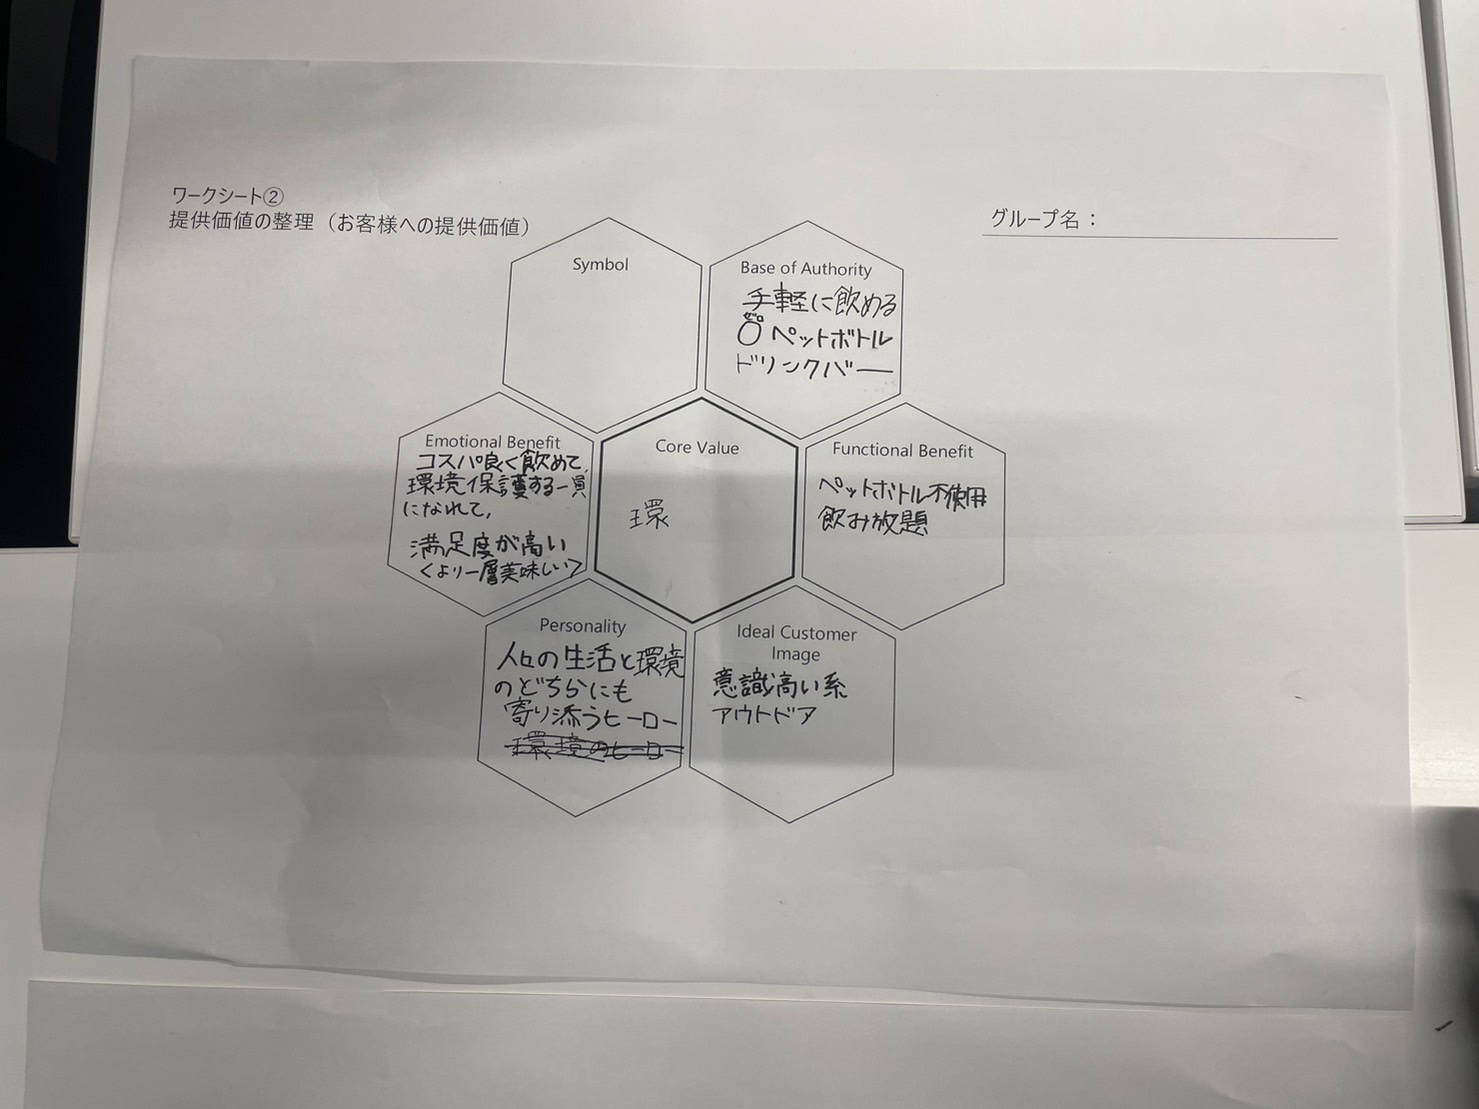 ワークシート②
提供価値の整理（お客様への提供価値）
グループ名：
Symbol
Base of Authority
手軽に飲める
ゼロ
0ペットボトル
ドリンクバー
Emotional Benefit
コスパ良く飲めて、
環境保護する一員
になれて、
満足度が高い
くより一層美味しい>
Core Value
環
Functional Benefit
ペットボトル不使用
飲み放題
Personality
人の生活と環境
のどちらにも
寄り添うヒーロー
環境のヒーロー
Ideal Customer
Image
意識高い系
アウトドア